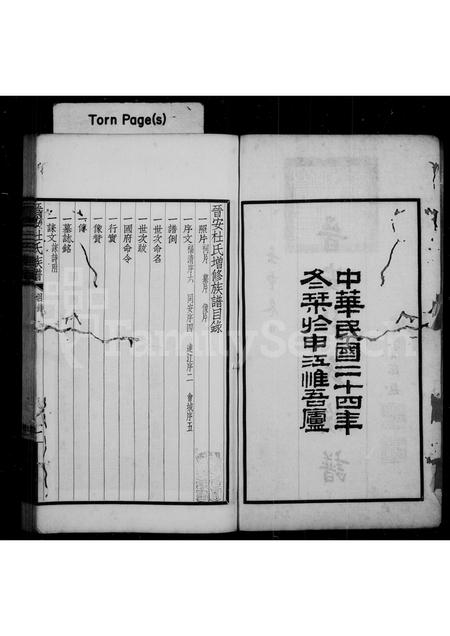 Torn Page(s)
中華民國二十四年
冬栞於申江惟吾廬
晉安杜氏增修族譜目錄
一照片 祠片 墓片 像片
一序文 福清序六 同安序四 連江序二 會城序五
一譜例
一世次命名
一世次跋
一國府命令
一行實
一像贊
一傳
一墓誌銘
一誄文
晉安杜氏族譜
FamilySearch